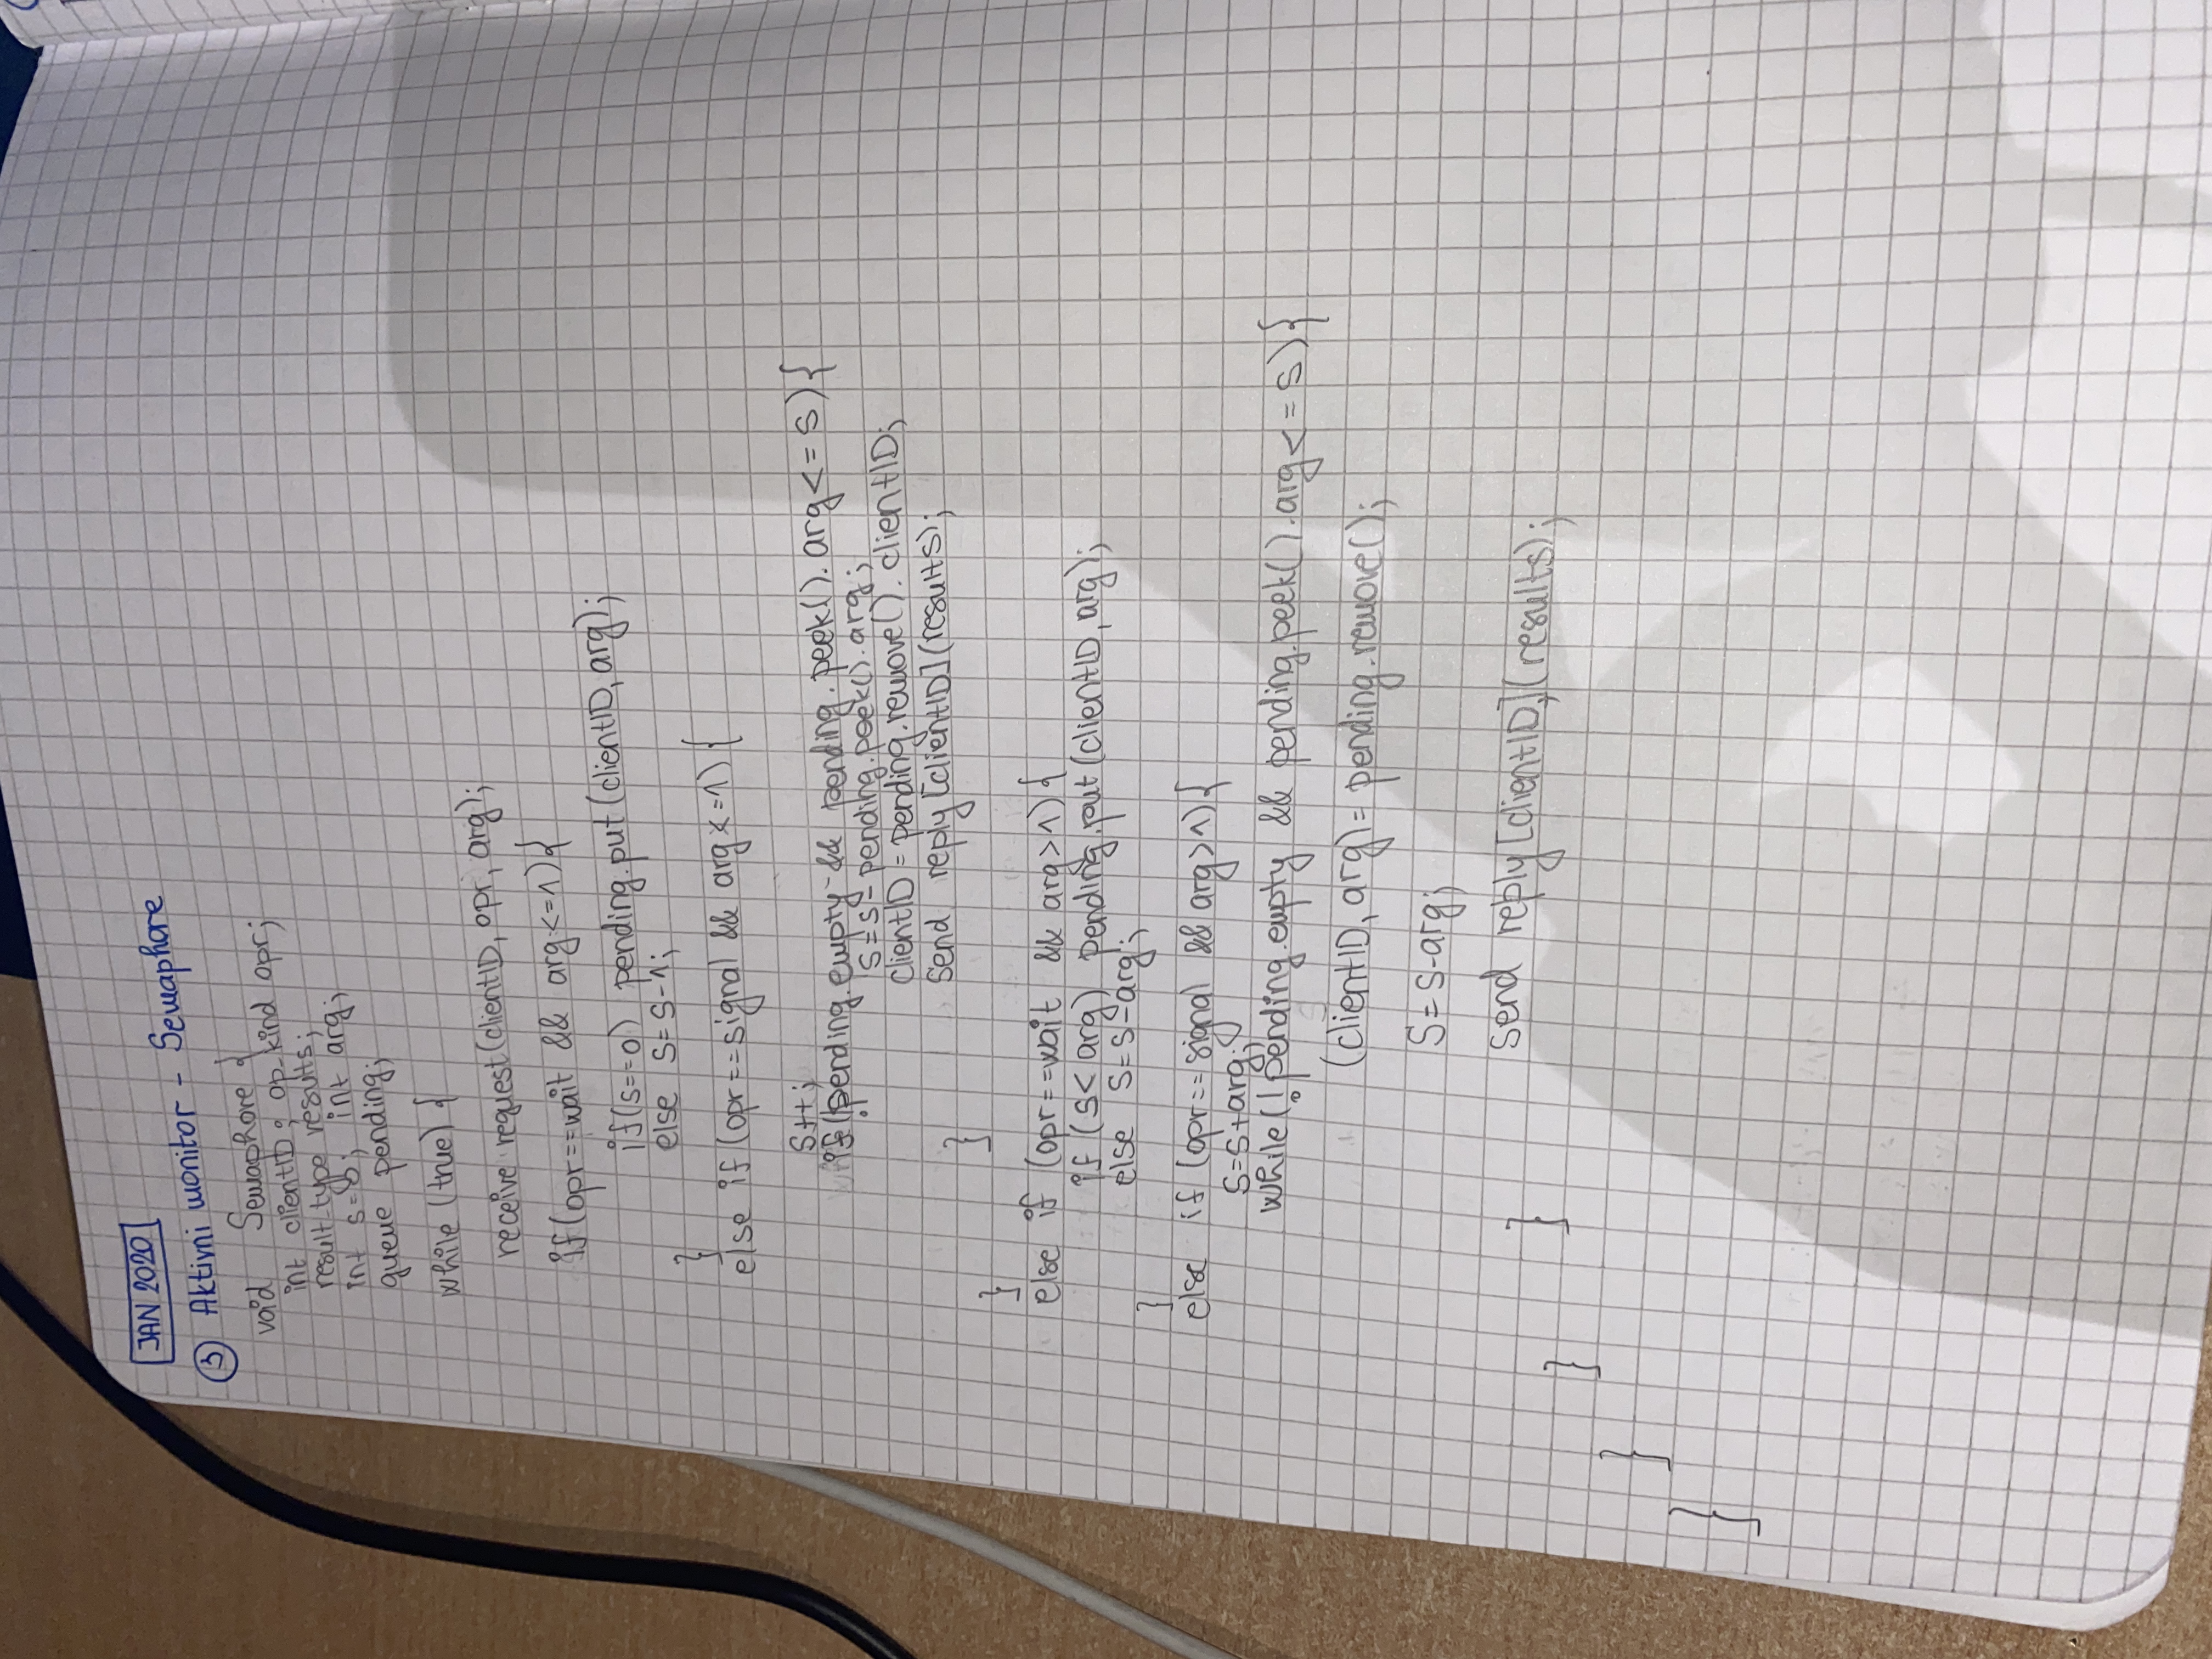 JAN 2020
3 Aktivni monitor - Semaphore
void Semaphore {
int clientID; op_kind opr;
result_type results;
int s=0; int arg;
queue pending;
while (true) {
receive request(clientID, opr, arg);
if(opr==wait && arg<=1){
if(s==0) pending.put(clientID, arg);
else s=s-1;
}
else if (opr==signal && arg<=1) {
s++;
if(!pending.empty && pending.peek().arg<=s){
s=s-pending.peek().arg;
clientID=pending.remove().clientID;
send reply[clientID](results);
}
}
else if (opr==wait && arg>1){
if (s<arg) pending.put(clientID, arg);
else s=s-arg;
}
else if (opr==signal && arg>1){
s=s+arg;
while(!pending.empty && pending.peek().arg<=s){
(clientID, arg)=pending.remove();
s=s-arg;
send reply[clientID](results);
}
}
}
}